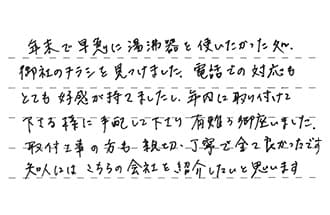 年末で早急に湯沸器を使いたかった処、
御社のチラシを見つけました。電話での対応も
とても好感が持てましたし、年内に取り付けて
下さる様に手配して下さり有難う御座いました。
取付工事の方も親切、丁寧で全て良かったです
知人にはこちらの会社を紹介したいと思います